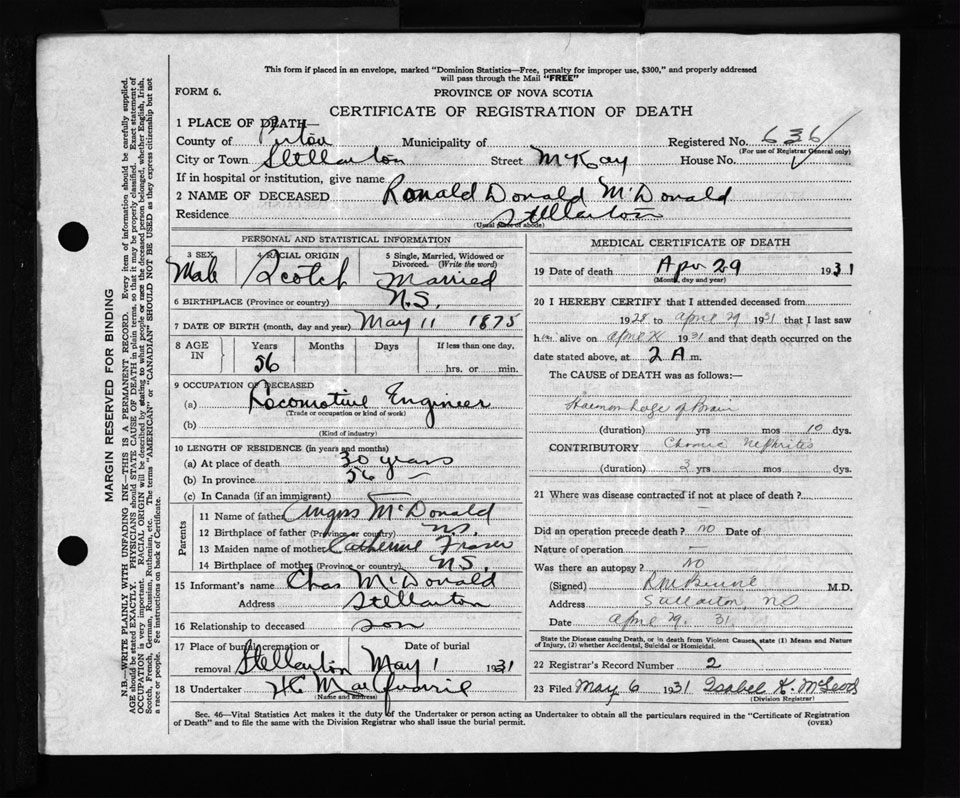 This form if placed in an envelope, marked "Dominion Statistics—Free, penalty for improper use, $300," and properly addressed
will pass through the Mail "FREE"
FORM 6.
PROVINCE OF NOVA SCOTIA
CERTIFICATE OF REGISTRATION OF DEATH
1 PLACE OF DEATH—
County of Pictou Municipality of Registered No. 636
(For use of Registrar General only)
City or Town Stellarton Street McKay House No.
If in hospital or institution, give name
2 NAME OF DECEASED Ronald Donald McDonald
Residence Stellarton
(Usual place of abode)
PERSONAL AND STATISTICAL INFORMATION
3 SEX 4 RACIAL ORIGIN 5 Single, Married, Widowed or Divorced. (Write the word)
Male Scotch Married
6 BIRTHPLACE (Province or country) N.S.
7 DATE OF BIRTH (month, day and year) May 11 1875
8 AGE IN Years Months Days If less than one day,
56 hrs. or min.
9 OCCUPATION OF DECEASED
(a) Locomotive Engineer
(Trade or occupation or kind of work)
(b)
(Kind of industry)
10 LENGTH OF RESIDENCE (in years and months)
(a) At place of death 30 years
(b) In province 56 —
(c) In Canada (if an immigrant) —
Parents
11 Name of father Angus McDonald
12 Birthplace of father (Province or country) N.S.
13 Maiden name of mother Catherine Fraser
14 Birthplace of mother (Province or country) N.S.
15 Informant's name Chas McDonald
Address Stellarton
16 Relationship to deceased son
17 Place of burial, cremation or removal Stellarton Date of burial May 1 1931
18 Undertaker HC MacQuarrie
(Name and address)
MEDICAL CERTIFICATE OF DEATH
19 Date of death Apr 29 1931
(Month, day and year)
20 I HEREBY CERTIFY that I attended deceased from
1928 to April 29 1931 that I last saw
him alive on April 1931 and that death occurred on the
date stated above, at 2 A.m.
The CAUSE of DEATH was as follows:—
Haemorrhage of Brain
(duration) yrs mos 10 dys.
CONTRIBUTORY Chronic Nephritis
(duration) 3 yrs mos dys.
21 Where was disease contracted if not at place of death?
—
Did an operation precede death? no Date of
Nature of operation —
Was there an autopsy? No
(Signed) M.D.
Address Stellarton, NS
Date April 29. 31.
State the Disease causing Death, or in death from Violent Causes, state (1) Means and Nature
of Injury, (2) whether Accidental, Suicidal or Homicidal.
22 Registrar's Record Number 2
23 Filed May 6 1931 Isabel K. McLeod
(Division Registrar)
Sec. 46—Vital Statistics Act makes it the duty of the Undertaker or person acting as Undertaker to obtain all the particulars required in the "Certificate of Registration
of Death" and to file the same with the Division Registrar who shall issue the burial permit. (OVER)
MARGIN RESERVED FOR BINDING
N.B.—WRITE PLAINLY WITH UNFADING INK—THIS IS A PERMANENT RECORD. Every item of information should be carefully supplied.
AGE should be stated EXACTLY. PHYSICIANS should STATE CAUSE OF DEATH in plain terms, so that it may be properly classified. Exact statement of
OCCUPATION is very important. RACIAL ORIGIN will be described by stating to what people or race the deceased person belonged, whether English, Irish,
Scotch, French, German, Russian, Ruthenian, etc. The terms "AMERICAN" or "CANADIAN" SHOULD NOT BE USED as they express citizenship but not
a race or people. See instructions on back of Certificate.